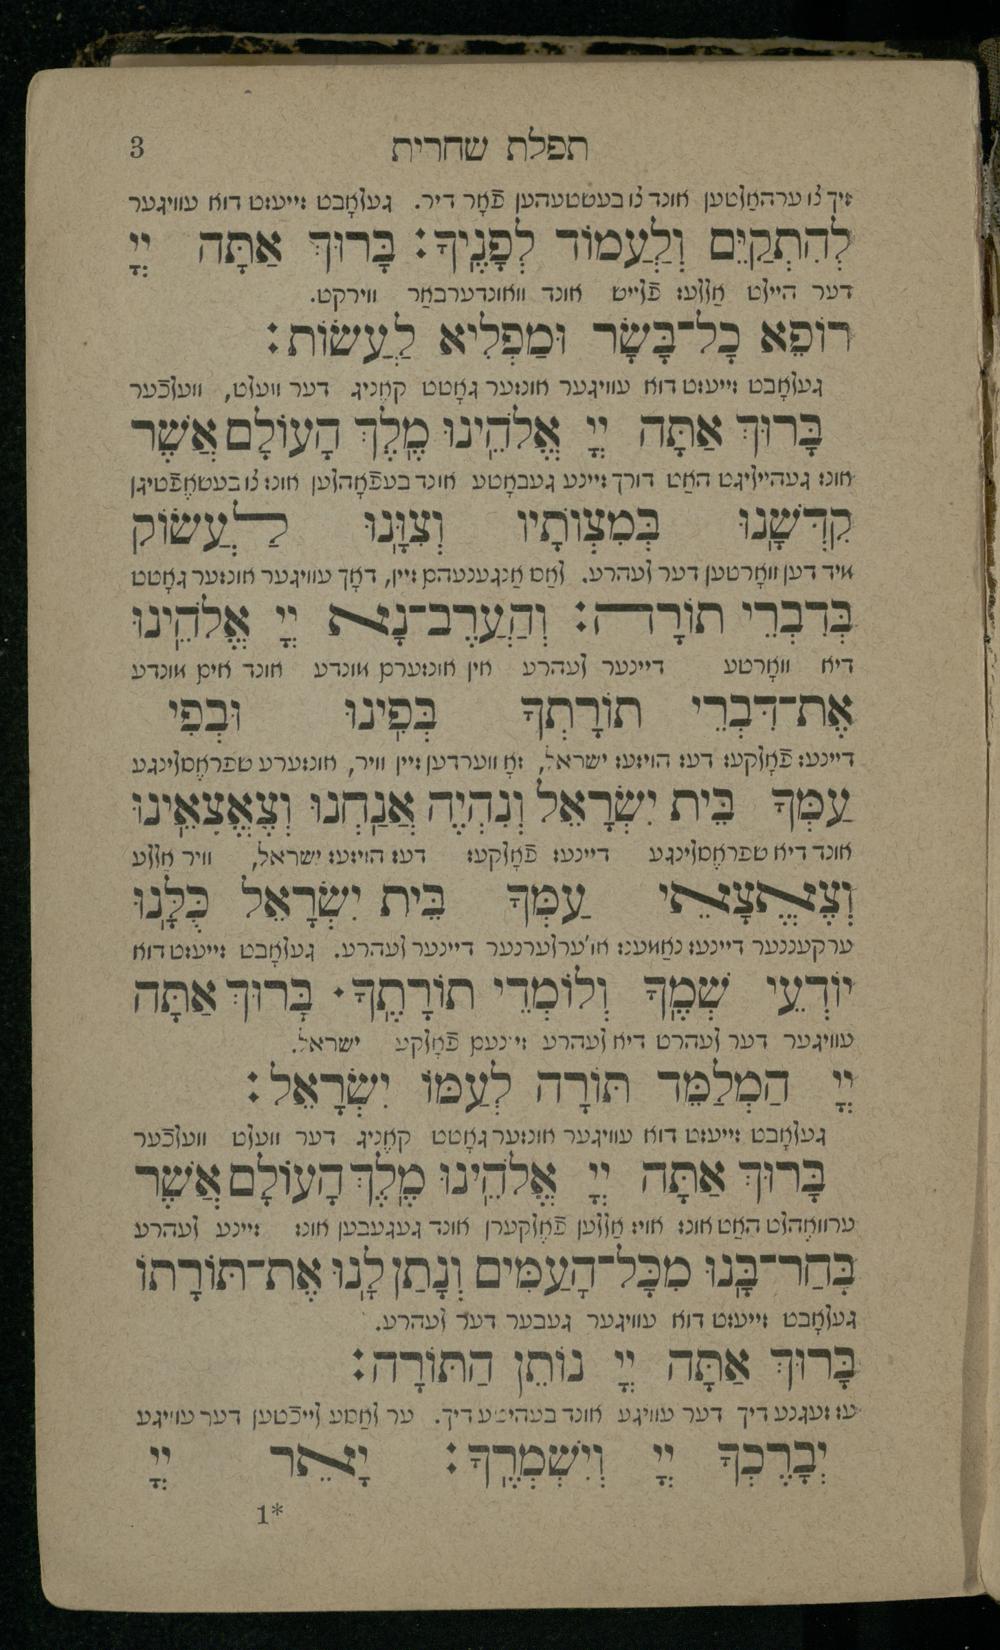 תפלת שחרית 3
זיך צו ערהאַלטען אונד צו בעשטעהען פֿאָר דיר. געלאָבט זייעזט דוא עוויגער
לְהִתְקַיֵּם וְלַעֲמוֹד לְפָנֶיךָ׃ בָּרוּךְ אַתָּה יְיָ
דער היילט אַללעז פֿלייש אונד וואונדערבאַר ווירקט.
רוֹפֵא כָל־בָּשָׂר וּמַפְלִיא לַעֲשׂוֹת׃
געלאָבט זייעזט דוא עוויגער אונזער גאָטט קאֶניג דער וועלט, וועלכֿער
בָּרוּךְ אַתָּה יְיָ אֱלֹהֵינוּ מֶלֶךְ הָעוֹלָם אֲשֶׁר
אונז געהייליגט האַט דורך זיינע געבאָטע אונד בעפֿאָהלען אונז צו בעשאֶפֿטיגן
קִדְּשָׁנוּ בְּמִצְוֹתָיו וְצִוָּנוּ לַעֲשׂוֹק
מיד דען וואָרטען דער לעהרע. לאַס אַנגענעהם זיין, דאָך עוויגער אונזער גאָטט
בְּדִבְרֵי תוֹרָה׃ וְהַעֲרֶב־נָא יְיָ אֱלֹהֵינוּ
דיא וואָרטע דיינער לעהרע אין אונזערם מונדע אונד אים מונדע
אֶת־דִּבְרֵי תוֹרָתְךָ בְּפִינוּ וּבְפִי
דיינעז פֿאָלקעז דעז הויזעז ישראל, זאָ ווערדען זיין וויר, אונזערע שפראֶסלינגע
עַמְּךָ בֵּית יִשְׂרָאֵל וְנִהְיֶה אֲנַחְנוּ וְצֶאֱצָאֵינוּ
אונד דיא שפראֶסלינגע דיינעז פֿאָלקעז דעז הויזעז ישראל, וויר אַללע
וְצֶאֱצָאֵי עַמְּךָ בֵּית יִשְׂרָאֵל כֻּלָּנוּ
ערקעננער דיינעז נאַמענז או'ערלערנער דיינער לעהרע. געלאָבט זייעזט דוא
יוֹדְעֵי שְׁמֶךָ וְלוֹמְדֵי תוֹרָתֶךָ· בָּרוּךְ אַתָּה
עוויגער דער לעהרט דיא לעהרע זיינעם פֿאָלקע ישראל.
יְיָ הַמְלַמֵּד תּוֹרָה לְעַמּוֹ יִשְׂרָאֵל׃
געלאָבט זייעזט דוא עוויגער אונזער גאָטט קאֶניג דער וועלט וועלכֿער
בָּרוּךְ אַתָּה יְיָ אֱלֹהֵינוּ מֶלֶךְ הָעוֹלָם אֲשֶׁר
ערוואֶהלט האַט אונז אויז אַללען פֿאֶלקערן אונד געגעבען אונז זיינע לעהרע
בָּחַר־בָּנוּ מִכָּל־הָעַמִּים וְנָתַן לָנוּ אֶת־תּוֹרָתוֹ
געלאָבט זייעזט דוא עוויגער געבער דער לעהרע.
בָּרוּךְ אַתָּה יְיָ נוֹתֵן הַתּוֹרָה׃
עז זעגנע דיך דער עוויגע אונד בעהיטע דיך. ער לאַסע לייכֿטען דער עוויגע
יְבָרֶכְךָ יְיָ וְיִשְׁמְרֶךָ׃ יָאֵר יְיָ
1*